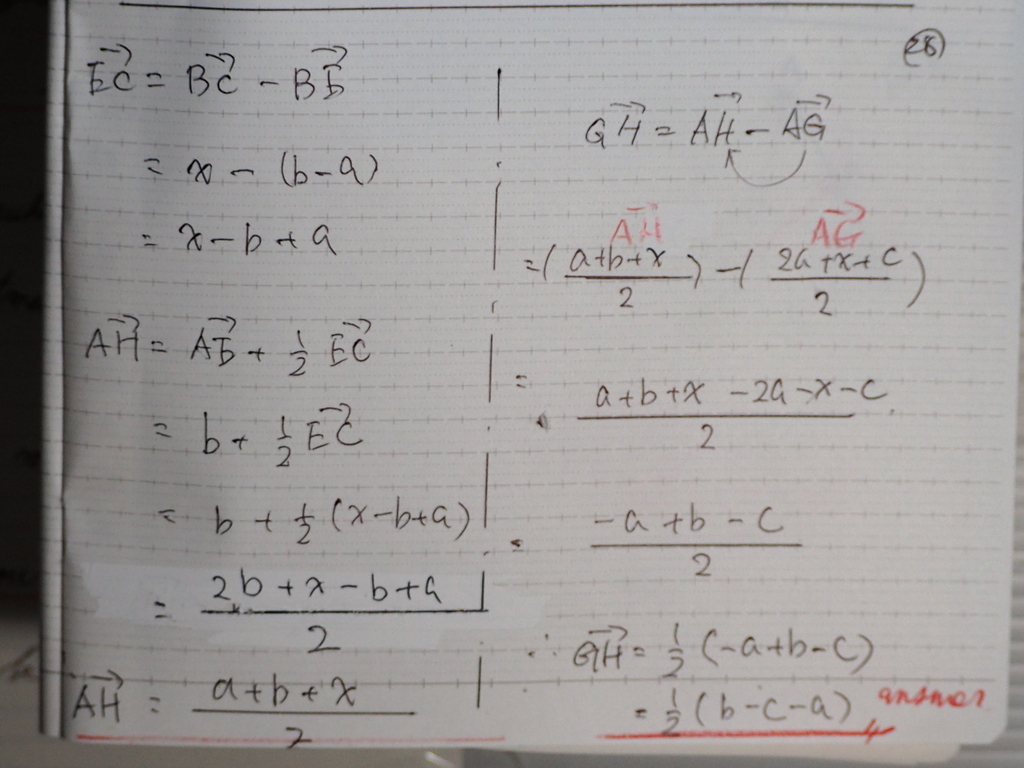 (28)
EC→ = BC→ − BE→
= x − (b−a)
= x−b+a
AH→ = AE→ + 1/2 EC→
= b + 1/2 EC→
= b + 1/2 (x−b+a)
= (2b+x−b+a)/2
AH→ = (a+b+x)/2
GH→ = AH→ − AG→
AH→ AG→
= ((a+b+x)/2) − ((2a+x+c)/2)
= (a+b+x −2a−x−c)/2
= (−a+b−c)/2
∴ GH→ = 1/2 (−a+b−c)
= 1/2 (b−c−a) answer